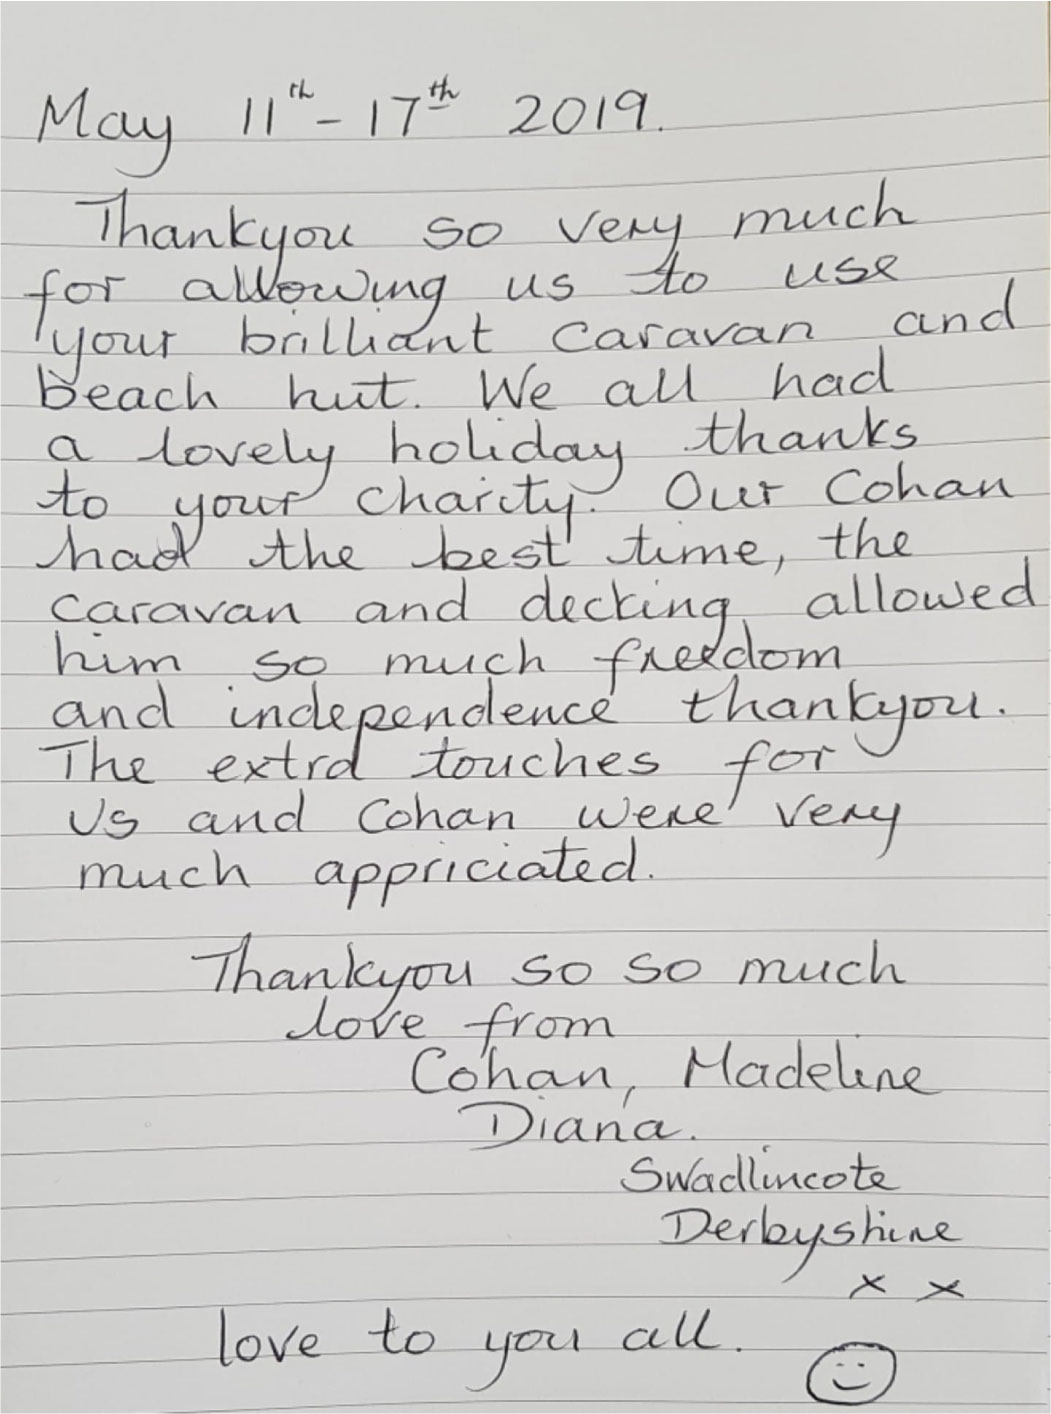 May 11th - 17th 2019.
Thankyou so very much
for allowing us to use
your brilliant caravan and
beach hut. We all had
a lovely holiday thanks
to your charity. Our Cohan
had the best time, the
caravan and decking allowed
him so much freedom
and independence thankyou.
The extra touches for
us and Cohan were very
much appriciated.
Thankyou so so much
love from
Cohan, Madeline
Diana.
Swadlincote
Derbyshire
x x
love to you all.